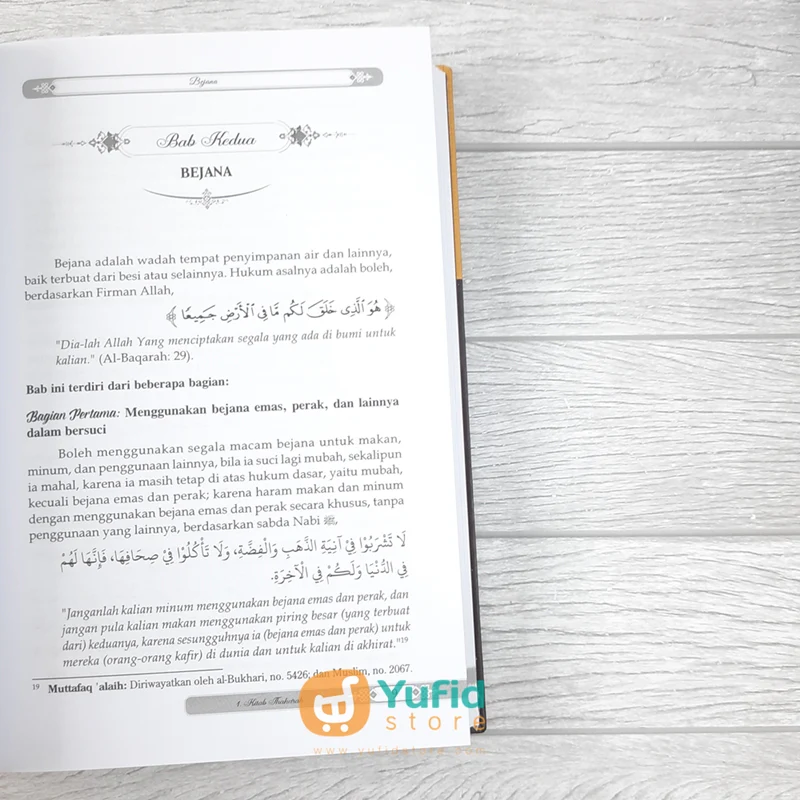 Bejana
Bab Kedua
BEJANA
Bejana adalah wadah tempat penyimpanan air dan lainnya,
baik terbuat dari besi atau selainnya. Hukum asalnya adalah boleh,
berdasarkan Firman Allah,
﴿ هُوَ ٱلَّذِى خَلَقَ لَكُم مَّا فِى ٱلْأَرْضِ جَمِيعًا ﴾
"Dia-lah Allah Yang menciptakan segala yang ada di bumi untuk
kalian." (Al-Baqarah: 29).
Bab ini terdiri dari beberapa bagian:
Bagian Pertama: Menggunakan bejana emas, perak, dan lainnya
dalam bersuci
Boleh menggunakan segala macam bejana untuk makan,
minum, dan penggunaan lainnya, bila ia suci lagi mubah, sekalipun
ia mahal, karena ia masih tetap di atas hukum dasar, yaitu mubah,
kecuali bejana emas dan perak; karena haram makan dan minum
dengan menggunakan bejana emas dan perak secara khusus, tanpa
penggunaan yang lainnya, berdasarkan sabda Nabi ﷺ,
لَا تَشْرَبُوْا فِيْ آنِيَةِ الذَّهَبِ وَالْفِضَّةِ، وَلَا تَأْكُلُوْا فِيْ صِحَافِهَا، فَإِنَّهَا لَهُمْ
فِي الدُّنْيَا وَلَكُمْ فِي الْآخِرَةِ.
"Janganlah kalian minum menggunakan bejana emas dan perak, dan
jangan pula kalian makan menggunakan piring besar (yang terbuat
dari) keduanya, karena sesungguhnya ia (bejana emas dan perak) untuk
mereka (orang-orang kafir) di dunia dan untuk kalian di akhirat."19
19 Muttafaq 'alaih: Diriwayatkan oleh al-Bukhari, no. 5426; dan Muslim, no. 2067.
1. Kitab
Yufid
store
www.yufidstore.com